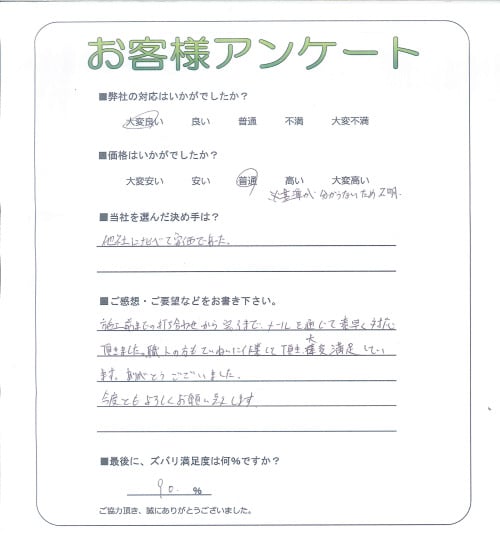 お客様アンケート
■弊社の対応はいかがでしたか？
大変良い 良い 普通 不満 大変不満
■価格はいかがでしたか？
大変安い 安い 普通 高い 大変高い
※基準が分からないため不明.
■当社を選んだ決め手は？
他社に比べて安価であった.
■ご感想・ご要望などをお書き下さい。
施工前までの打ち合わせから完了まで、メールを通じて素早く対応
頂きました。職人の方もていねいに作業して頂き大変満足してい
ます。ありがとうございました。
今度ともよろしくお願い致します
■最後に、ズバリ満足度は何％ですか？
90. ％
ご協力頂き、誠にありがとうございました。